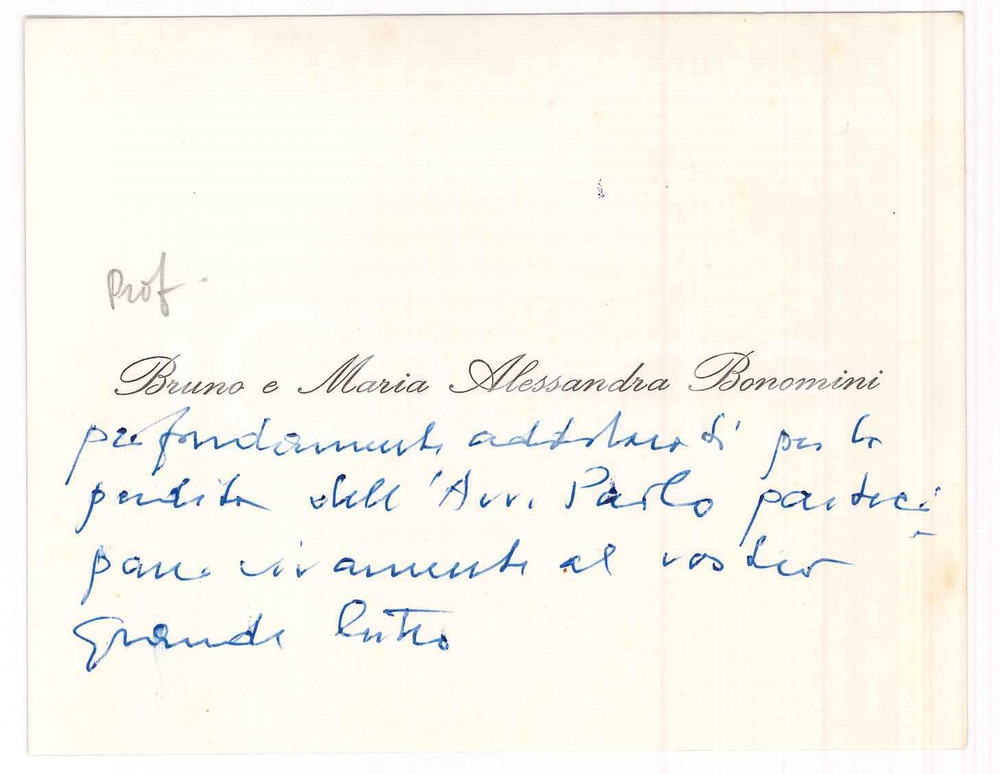 Prof.
Bruno e Maria Alessandra Bonomini
profondamente addolorati per la
perdita dell'Avv. Paolo parteci-
pano vivamente al vostro
grande lutto